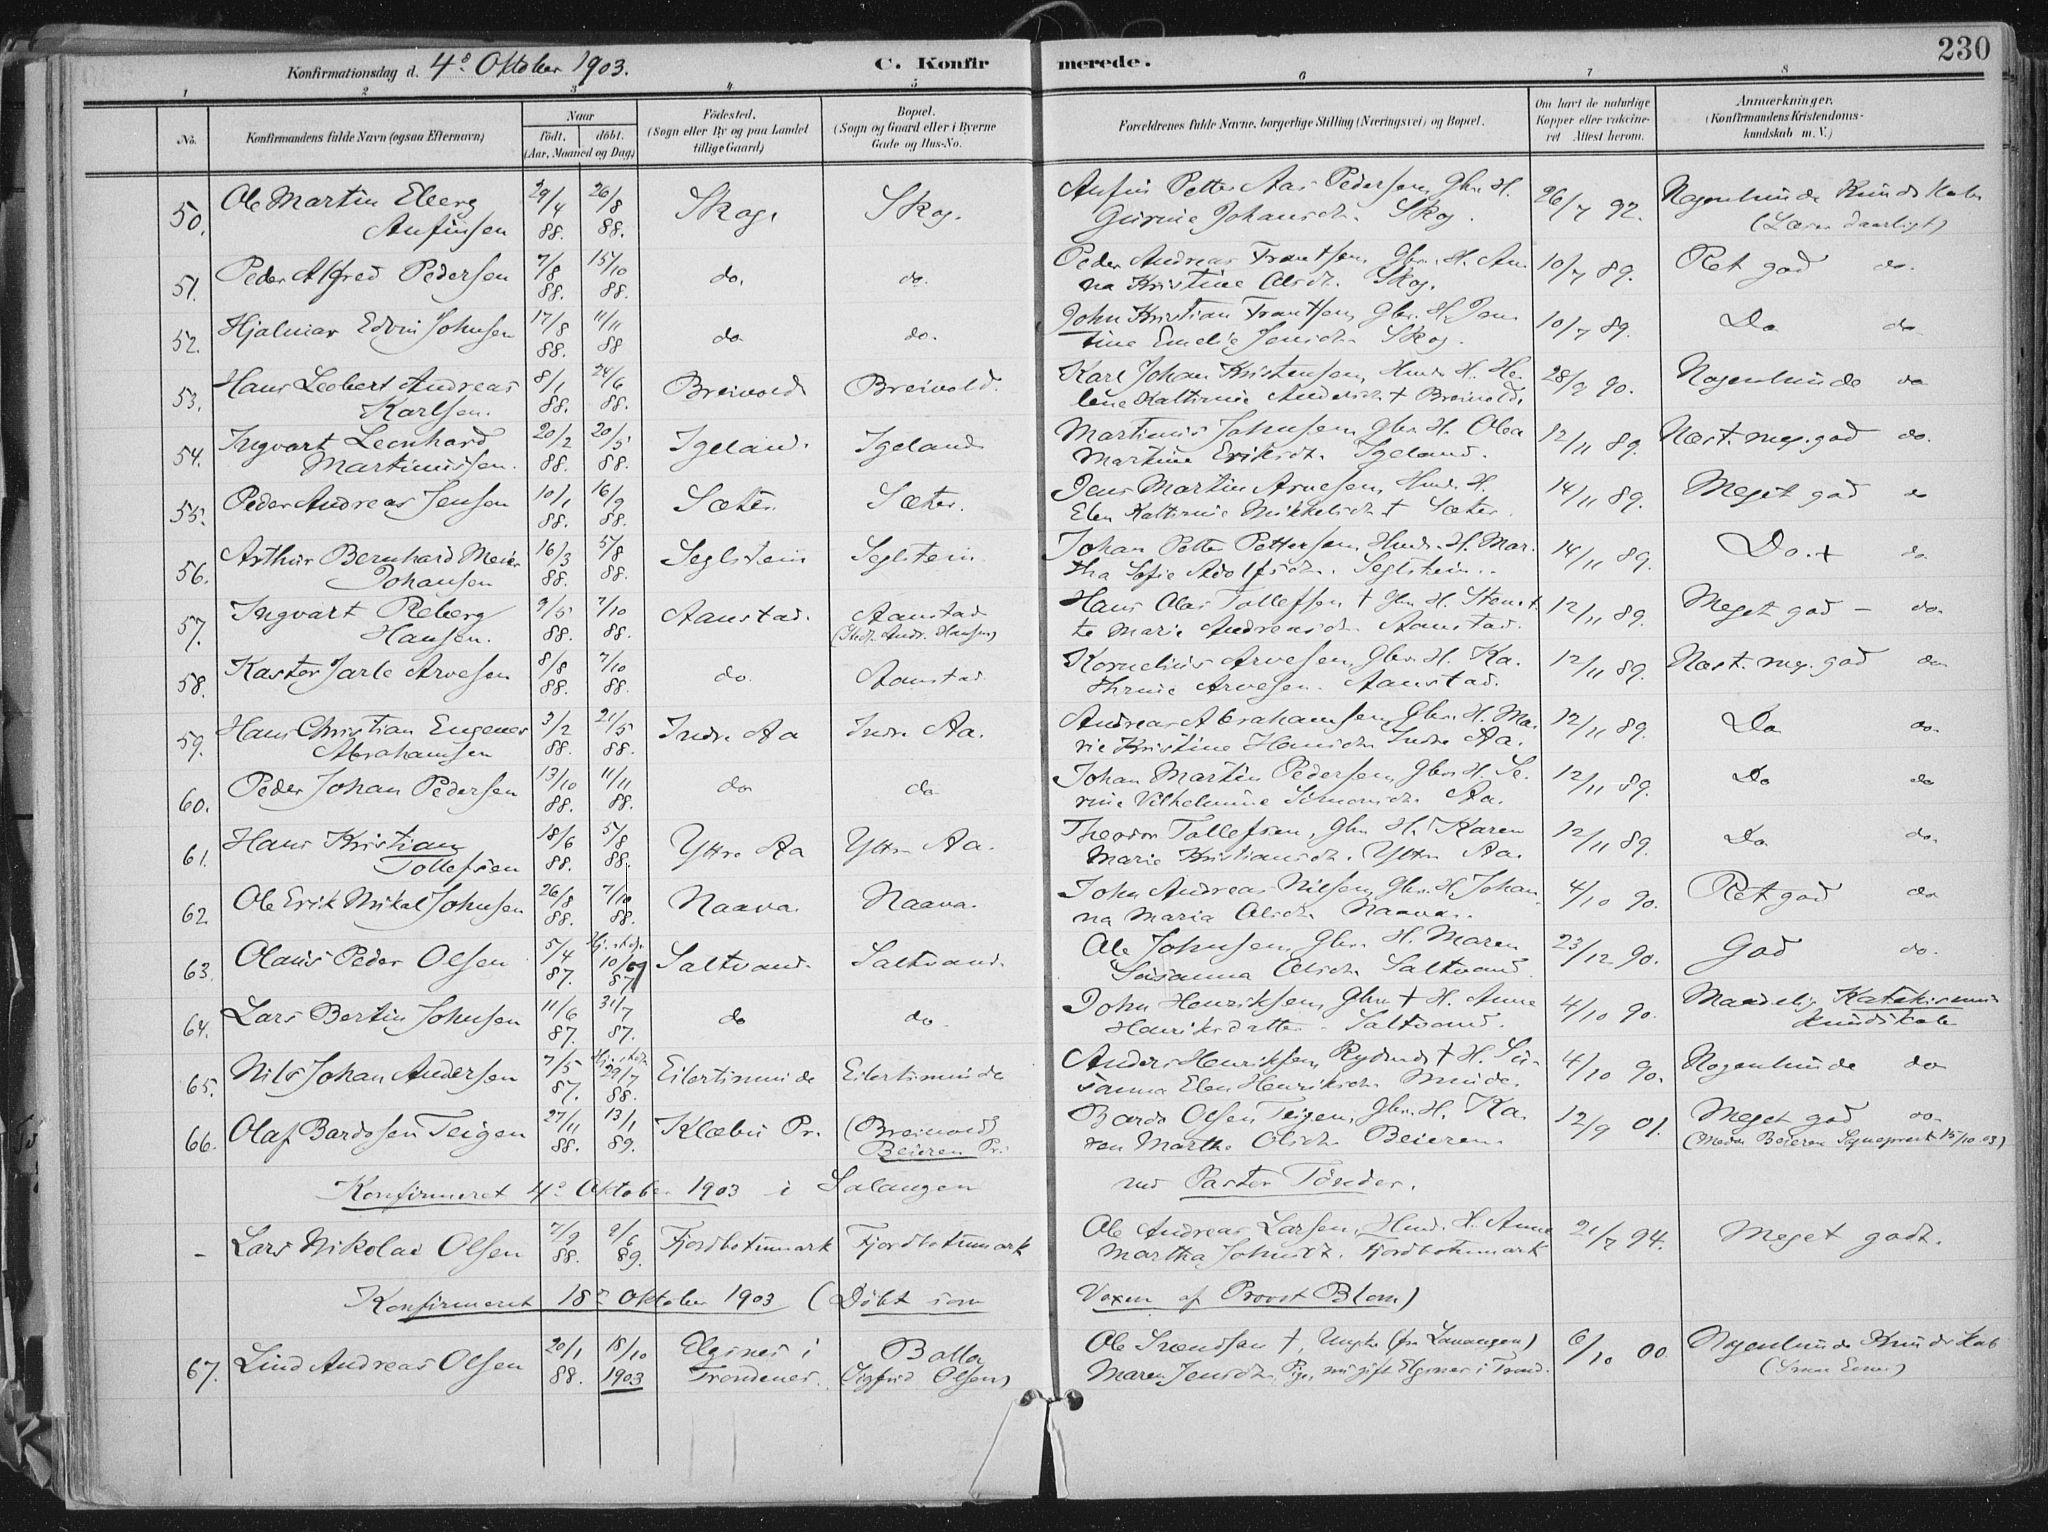 230
Konfirmationsdag d. 4de Oktober 1903.
C. Konfirmerede.
1 2 3 4 5 6 7 8
No.
Konfirmandens fulde Navn (ogsaa Efternavn)
Naar
født. døbt.
(Aar, Maaned og Dag)
Fødested.
(Sogn eller By og paa Landet
tillige Gaard)
Bopæl.
(Sogn og Gaard eller i Byerne
Gade og Hus-No.
Forældrenes fulde Navne, borgerlige Stilling (Næringsvei) og Bopæl.
Om havt de naturlige
Kopper eller vakcine-
ret Attest herom.
Anmærkninger.
(Konfirmandens Kristendoms-
kundskab m. V.)
50. Ole Martin Eberg 29/4 26/8 Skog. Skog. Anfin Petter Aas Pedersen, Gbr. H. 26/7 92. Nogenlunde Kundskab
Anfinsen 88. 88. Johansdtr. Skog. (Læser daarligt)
51. Peder Alfred Pedersen 7/8 15/10 do. do. Peder Andreas Frantsen, Gbr. H. An- 10/7 89. Ret god do.
88. 88. na Kristine Olsdtr. Skog.
52. Hjalmar Edvin Johnsen 17/8 11/11 do do. John Kristian Frantsen, Gbr. H. Jen- 10/7 89. Do do
88. 88 tine Emelie Jensdtr. Skog.
53. Hans Leobert Andreas 8/1 24/6 Breivold Breivold. Karl Johan Kristensen, Hmd. H. He- 28/9 90. Nogenlunde do
Karlsen. 88. 88. lene Kathrine Andersdtr. + Breivold.
54. Ingvart Leonhard 20/2 20/5 Igeland. Igeland Martinus Johnsen, Gbr. H. Olea 12/11 89. Næst. meg. god do.
Martinussen. 88. 88. Martine Eriksdtr. Igeland.
55. Peder Andreas Jensen 10/1 16/9 Sæter. Sæter. Jens Martin Arnesen, Hmd. H. 14/11 89. Meget god do
88. 88. Elen Kathrine Mikkelsdtr + Sæter.
56. Arthur Bernhard Meier 16/3 5/8 Seglstein Seglstein. Johan Petter Pettersen, Hmd. H. Mar- 14/11 89. Do. + do
Johansen 88. 88. tha Sofie Adolfsdtr. Seglstein.
57. Ingvart Reberg 9/5 7/10 Aanstad. Aanstad Hans Olai Tollefsen + Gbr. H. 12/11 89. Meget god - do.
Hansen. 88. 88. (Andr. Hansen) Marie Andreasdtr. Aanstad.
58. Kastor Jarle Arvesen 8/8 7/10 do. Aanstad Kornelius Arvesen, Gbr. H. Ka- 12/11 89. Næst. meg. god do
88. 88. thrine Arvesen. Aanstad.
59. Hans Christian Eugenes 3/2 21/5 Indre Aa Indre Aa. Andreas Abrahamsen, Gbr. H. Ma- 12/11 89. Do do.
Abrahamsen 88. 88. rie Kristine Hansdtr. Indre Aa.
60. Peder Johan Pedersen 13/10 11/11 do do Johan Martin Pedersen, Gbr. H. Se- 12/11 89. Do do
88. 88. rine Vilhelmine Simonsdtr. Aa.
61. Hans Kristian 18/6 5/8 Yttre Aa Yttre Aa. Theodor Tollefsen, Gbr. H. Karen 12/11 89. Do do.
Tollefsen 88. 88. Marie Kristiansdtr. Yttre Aa.
62 Ole Erik Mikal Johnsen 26/8 7/10 Naava. Naava. John Andreas Nilsen, Gbr. H. Johan- 4/10 90. Ret god do
88. 88. na Maria Olsdtr. Naava.
63. Olaus Peder Olsen 5/4 Saltvand. Saltvand. Ole Johnsen, Gbr. H. Maren 23/12 90. God do.
87. 87. Susanna Olsdtr. Saltvand.
64. Lars Bertin Johnsen 11/6 31/7 do do. John Henriksen, Gbr. + H. Anne 4/10 90. Maadelig Katekismus
87. 87. Henriksdatter. Saltvand. kundskab
65. Nils Johan Andersen 7/5 29/7 Eilertsmunde Eilertsmunde Anders Henriksen, Rydmd. + H. Su- 4/10 90. Nogenlunde do
87. 88. sanna Elen Henriksdtr. Munde.
66. Olaf Bardosen Teigen 27/11 13/1 Klæbu Pr. (Breivold) Bardo Olsen Teigen, Gbr. H. Ka- 12/9 01. Meget god do.
88. 89. Beieren Pr. ren Martha Olsdtr. Beieren. (Meddt Beieren Sogneprest 15/10 03)
Konfirmeret 4de Oktober 1903 i Salangen ved Pastor Tønder.
- Lars Nikolai Olsen 7/9 9/6 Fjordbotnmark Fjordbotnmark Ole Andreas Larsen, Hmd. H. Anne 21/7 94. Meget godt.
88. 89. Martha Johnsdtr. Fjordbotnmark
Konfirmeret 18de Oktober 1903 (Døbt som Voxen af Provst Blom)
67. Lind Andreas Olsen 20/1 18/10 Elgsnes i Balla Ole Svendsen +, Ungk. (fra Lavangen) 6/10 00. Nogenlunde Kundskab
88. 1903 Trondenes. (Sigfrid Olsen) Maren Jensdtr. Pige, nu gift Elgsnes i Trond.